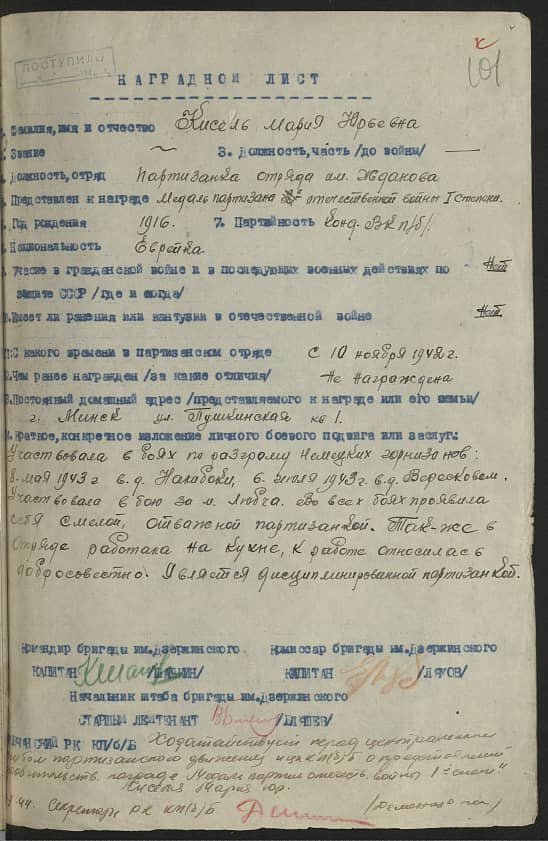 ПОСТУПИЛО
101
НАГРАДНОЙ ЛИСТ
Фамилия, имя и отчество Кисель Мария Юрьевна
Звание ~ 3. Должность, часть /до войны/ —
Должность, отряд Партизанка отряда им. Жданова
Представлен к награде Медаль партизана отечественной войны I степени.
Год рождения 1916. 7. Партийность канд. ВКП/б/.
Национальность Еврейка
Участие в гражданской войне и в последующих военных действиях по
защите СССР /где и когда/ Нет
Имеет ли ранения или контузии в отечественной войне Нет.
11. С какого времени в партизанском отряде С 10 ноября 1942 г.
Чем ранее награжден /за какие отличия/ Не награждена
Постоянный домашний адрес /представляемого к награде или его семьи/
г. Минск ул. Пушкинская 1.
Краткое, конкретное изложение личного боевого подвига или заслуг:
Участвовала в боях по разгрому немецких горнизонов:
8 мая 1943 г в.д. Налибоки, 6. июля 1943 г. в.д.
Участвовала в бою за м. Любча. Во всех боях проявила
себя смелой, отважной партизанкой. Так-же в
отряде работала на кухне, к работе относилась
добросовестно. Является дисциплинированной партизанкой.
Командир бригады им. Дзержинского Комиссар бригады им. Дзержинского
КАПИТАН КАПИТАН /ЛЯХОВ/
Начальник штаба бригады им. Дзержинского
СТАРШИЙ ЛЕЙТЕНАНТ
РК КП/б/Б Ходатайствует перед центральным
штабом партизанского движения и ЦК КП(б)Б о представлении
правительств. награде Медаль партиз. отечеств. войны 1ой степ.
Кисель Мария Юр.
44. Секретарь РК КП(б)Б